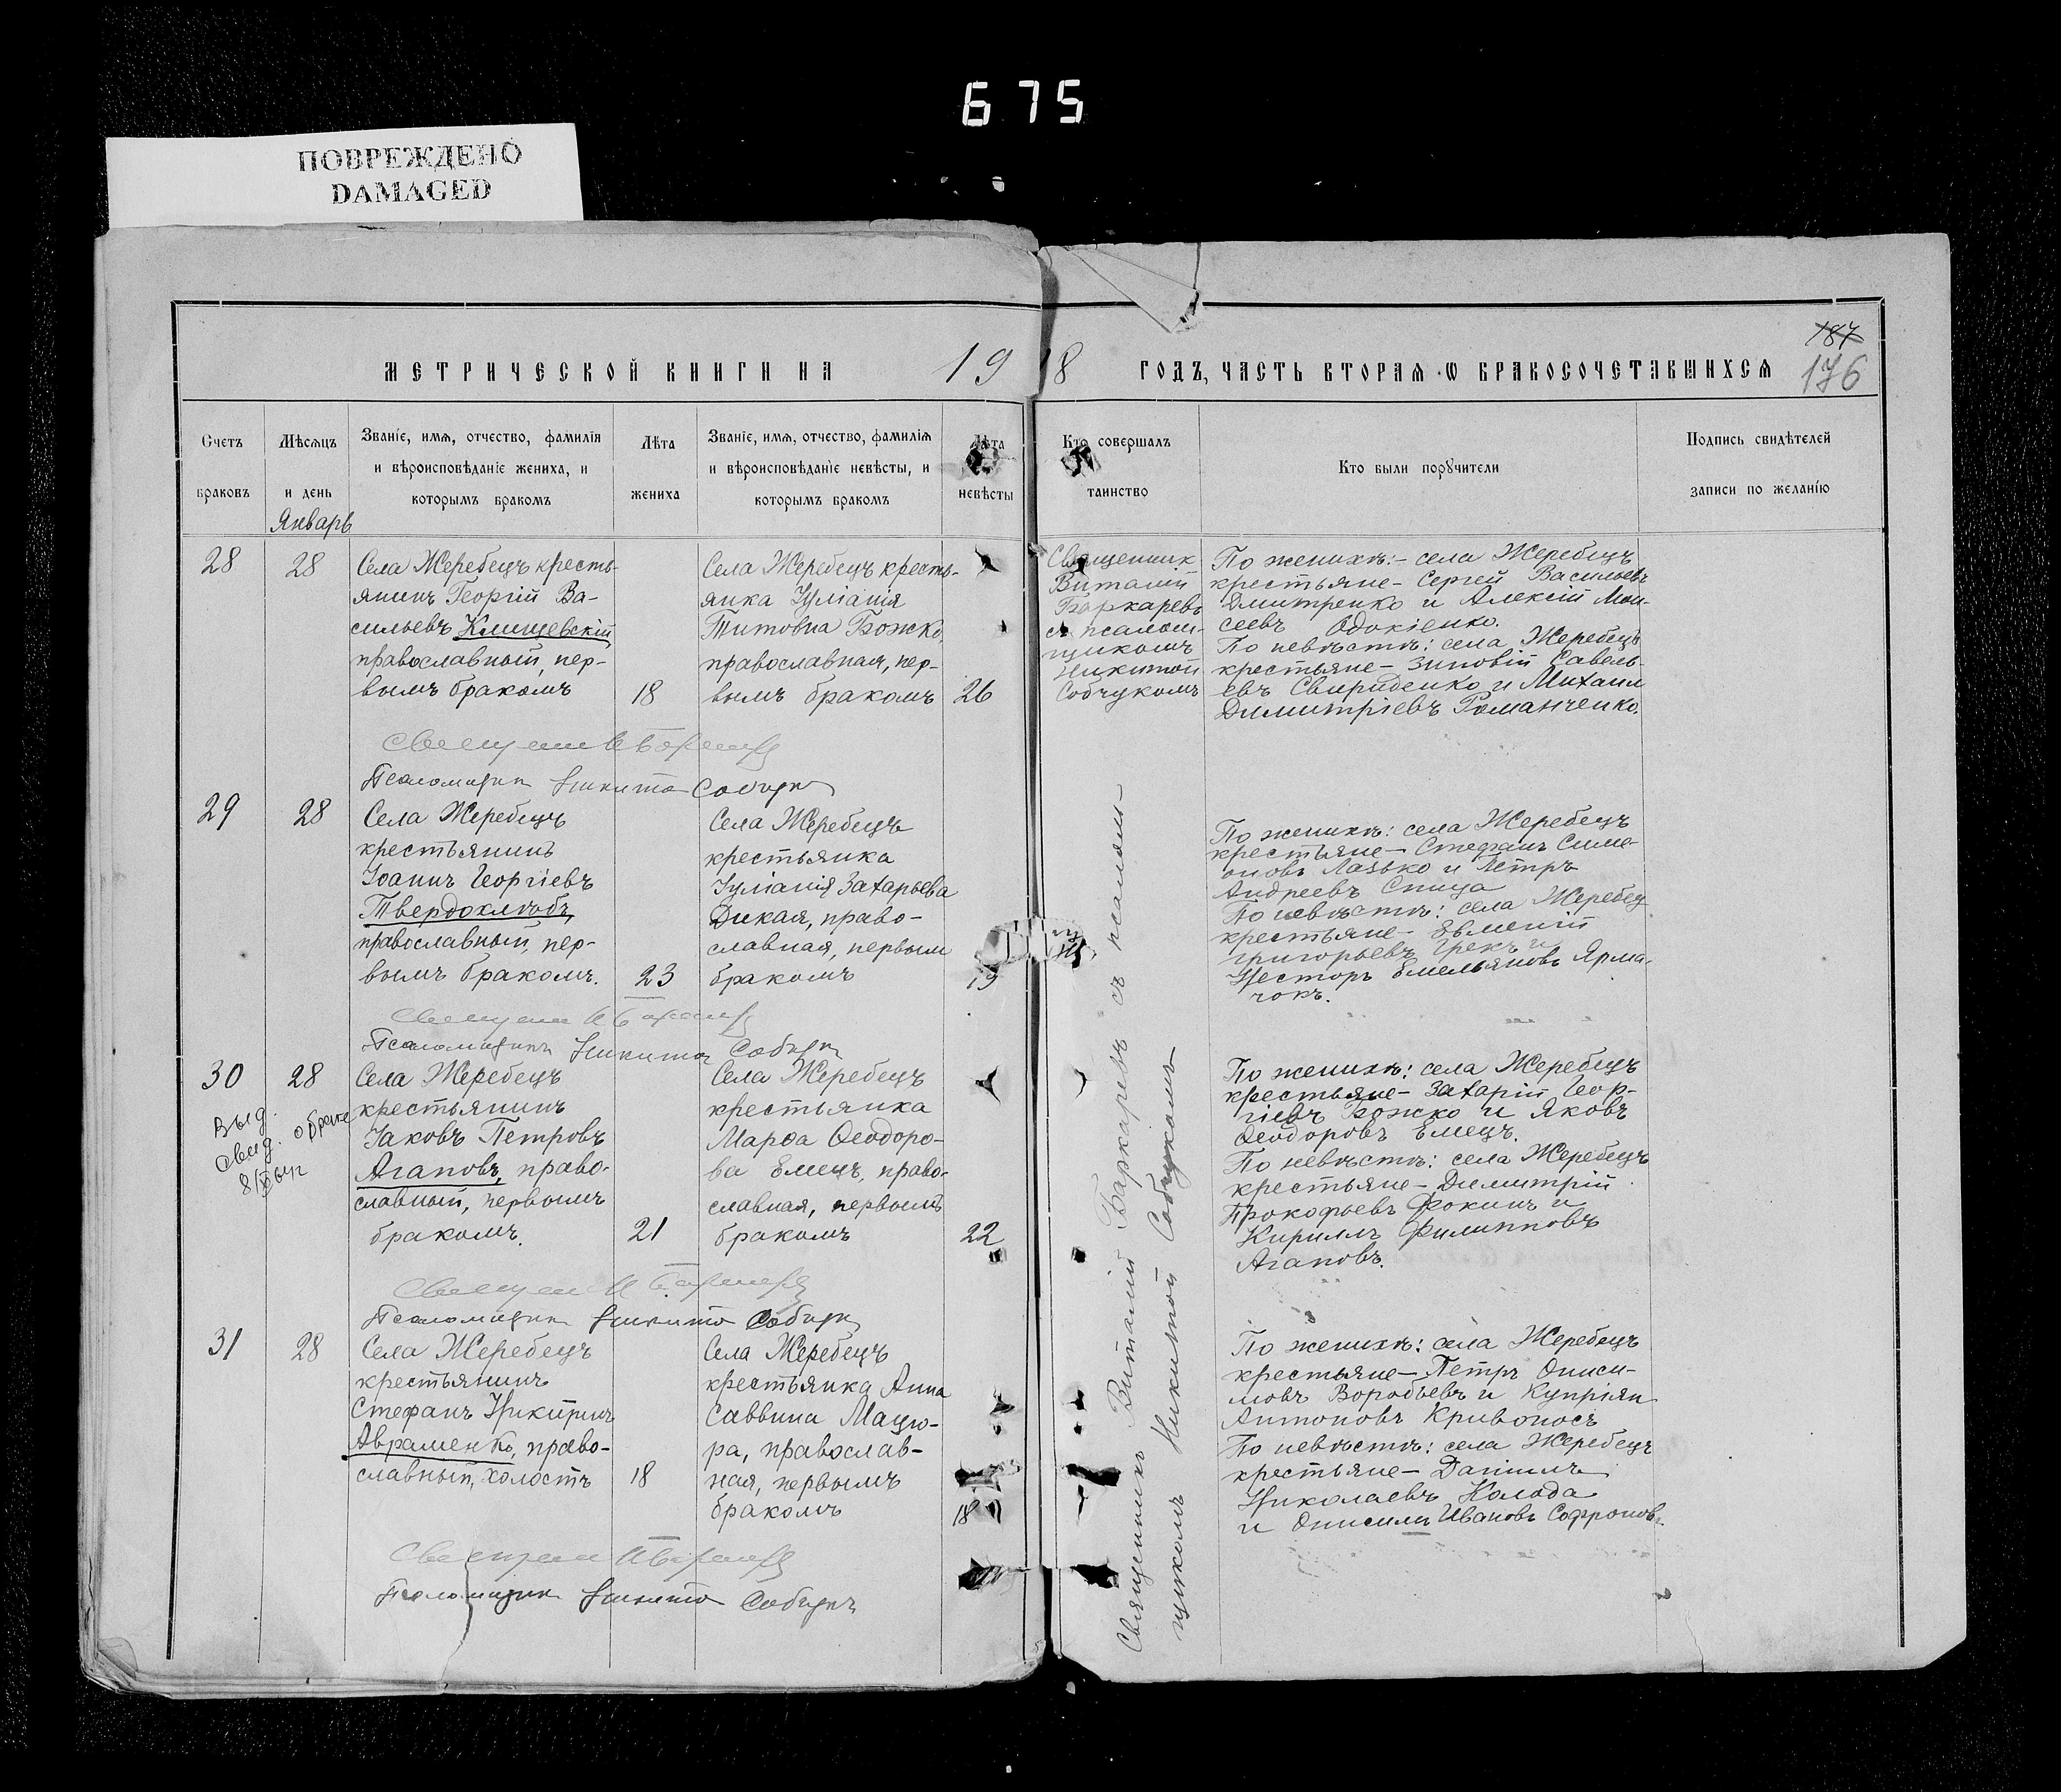 675
ПОВРЕЖДЕНО
DAMAGED
МЕТРИЧЕСКОЙ КНИГИ НА 1918 ГОДЪ, ЧАСТЬ ВТОРАЯ Ѡ БРАКОСОЧЕТАВШИХСѦ
187
176
Счетъ
браковъ
Мѣсѧцъ
и день
Январь
Званіе, имѧ, отчество, фамиліѧ
и вѣроисповѣданіе жениха, и
которымъ бракомъ
Лѣта
жениха
Званіе, имѧ, отчество, фамиліѧ
и вѣроисповѣданіе невѣсты, и
которымъ бракомъ
Лѣта
невѣсты
Кто совершалъ
таинство
Кто были порꙋчители
Подпись свидѣтелей
записи по желанію
28
28
Села Жеребецъ кресть-
янинъ Георгій Ва-
сильевъ Клищевскій
православный, пер-
вымъ бракомъ
18
Села Жеребецъ кресть-
янка Іуліанія
Титовна Божко,
православная, пер-
вымъ бракомъ
26
Священник
Виталий
Баркаревъ
с псалом-
щикомъ
Никитой
Собчукомъ
По женихѣ:- села Жеребецъ
крестьяне- Сергей Васильевъ
Дмитренко и Алексій Мои-
сеевъ Одокіенко.
По невѣстѣ: села Жеребецъ
крестьяне- Зиновій Савель-
евъ Свириденко и Михаил
Димитріевъ Романченко.
Псаломщикъ Никита Собчукъ
29
28
Села Жеребецъ
крестьянинъ
Іоаннъ Георгіевъ
Твердохлѣбъ,
православный, пер-
вымъ бракомъ.
23
Села Жеребецъ
крестьянка
Іуліанія Захарьева
Дикая, право-
славная, первым
бракомъ
19
По женихѣ: села Жеребецъ
крестьяне- Стефанъ Симе-
оновъ Лазько и Петръ
Андреевъ Спица
По невѣстѣ: села Жеребец
крестьяне- Евменій
Григорьевъ Грекъ и
Несторъ Емельяновъ Ярма-
чокъ.
Псаломщикъ Никита Собчукъ
30
28
Выд.
свид. о браке
Села Жеребецъ
крестьянинъ
Іаковъ Петровъ
Агаповъ, право-
славный, первымъ
бракомъ.
21
Села Жеребецъ
крестьянка
Марѳа Ѳеодоро-
ва Емецъ, право-
славная, первымъ
бракомъ
22
По женихѣ: села Жеребецъ
крестьяне- Захарій Геор-
гіевъ Божко и Яковъ
Ѳеодоровъ Емецъ.
По невѣстѣ: села Жеребецъ
крестьяне- Димитрій
Прокофьевъ Фокинъ и
Кириллъ Филипповъ
Агаповъ.
Псаломщикъ Никита Собчукъ
31
28
Села Жеребецъ
крестьянинъ
Стефанъ Никитинъ
Авраменко, право-
славный, холостъ
18
Села Жеребецъ
крестьянка Анна
Саввина Мацю-
ра, православ-
ная, первымъ
бракомъ
18
По женихѣ: села Жеребецъ
крестьяне- ПетръОниси-
мовъ Воробьевъ и Купріян
Антоновъ Кривоносъ
По невѣстѣ: села Жеребецъ
крестьяне- Даніилъ
Николаевъ Колода
и Онисим Ивановъ Софроновъ.
Псаломщикъ Никита Собчукъ
Священникъ Виталій Баркаревъ съ псалом-
щикомъ Никитой Собчукомъ